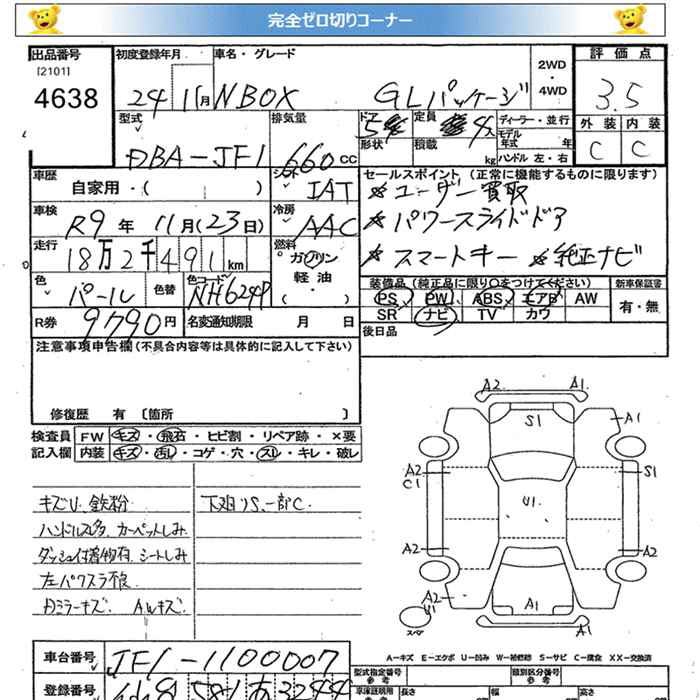 完全ゼロ切りコーナー
出品番号
[2101]
4638
初度登録年月
24 11月
車名・グレード
N BOX GLパッケージ
2WD
・
4WD
評価点
3.5
外装 内装
C C
型式
DBA-JF1
排気量
660 cc
ドア
5
定員
4人
ディーラー・並行
モデル
年式 年
形状
積載 kg
ハンドル 左・右
車歴
自家用・( )
シフト
IAT
セールスポイント(正常に機能するものに限ります)
※ユーザー買取
※パワースライドドア
※スマートキー ※純正ナビ
車検
R9年 11月(23日)
冷房
AAC
走行
18万2千491km
燃料
ガソリン
軽油
( )
色
パール
色替
色コードNo
NH624P
装備品(純正品に限り○をつけてください)
PS PW ABS エアB AW
SR ナビ TV カワ
新車保証書
有・無
R券 9790円
名変通知期限 月 日
後日品
注意事項申告欄(不具合内容等は具体的に記入して下さい)
修復歴 有 〔箇所 〕
検査員
記入欄
FW キズ・飛石・ヒビ割・リペア跡・×要
内装 キズ・汚レ・コゲ・穴・スレ・キレ・破レ
キズU、鉄粉
下廻りS、一部C
ハンドルスレ多、カーペットしみ
ダッシュ付着物有、シートしみ
左パワスラ不良
内ミラーキズ、AWキズ
A2 A1
S1
A1
A2
C1
S1
U1
A2
A2
A2
U1
A1
スペア
A1
A-キズ E-エクボ U-凹み W-補修跡 S-サビ C-腐食 XX-交換済
車台番号
JF1-1100007
登録番号
型式指定番号
類別区分番号
長さ
幅
高さ